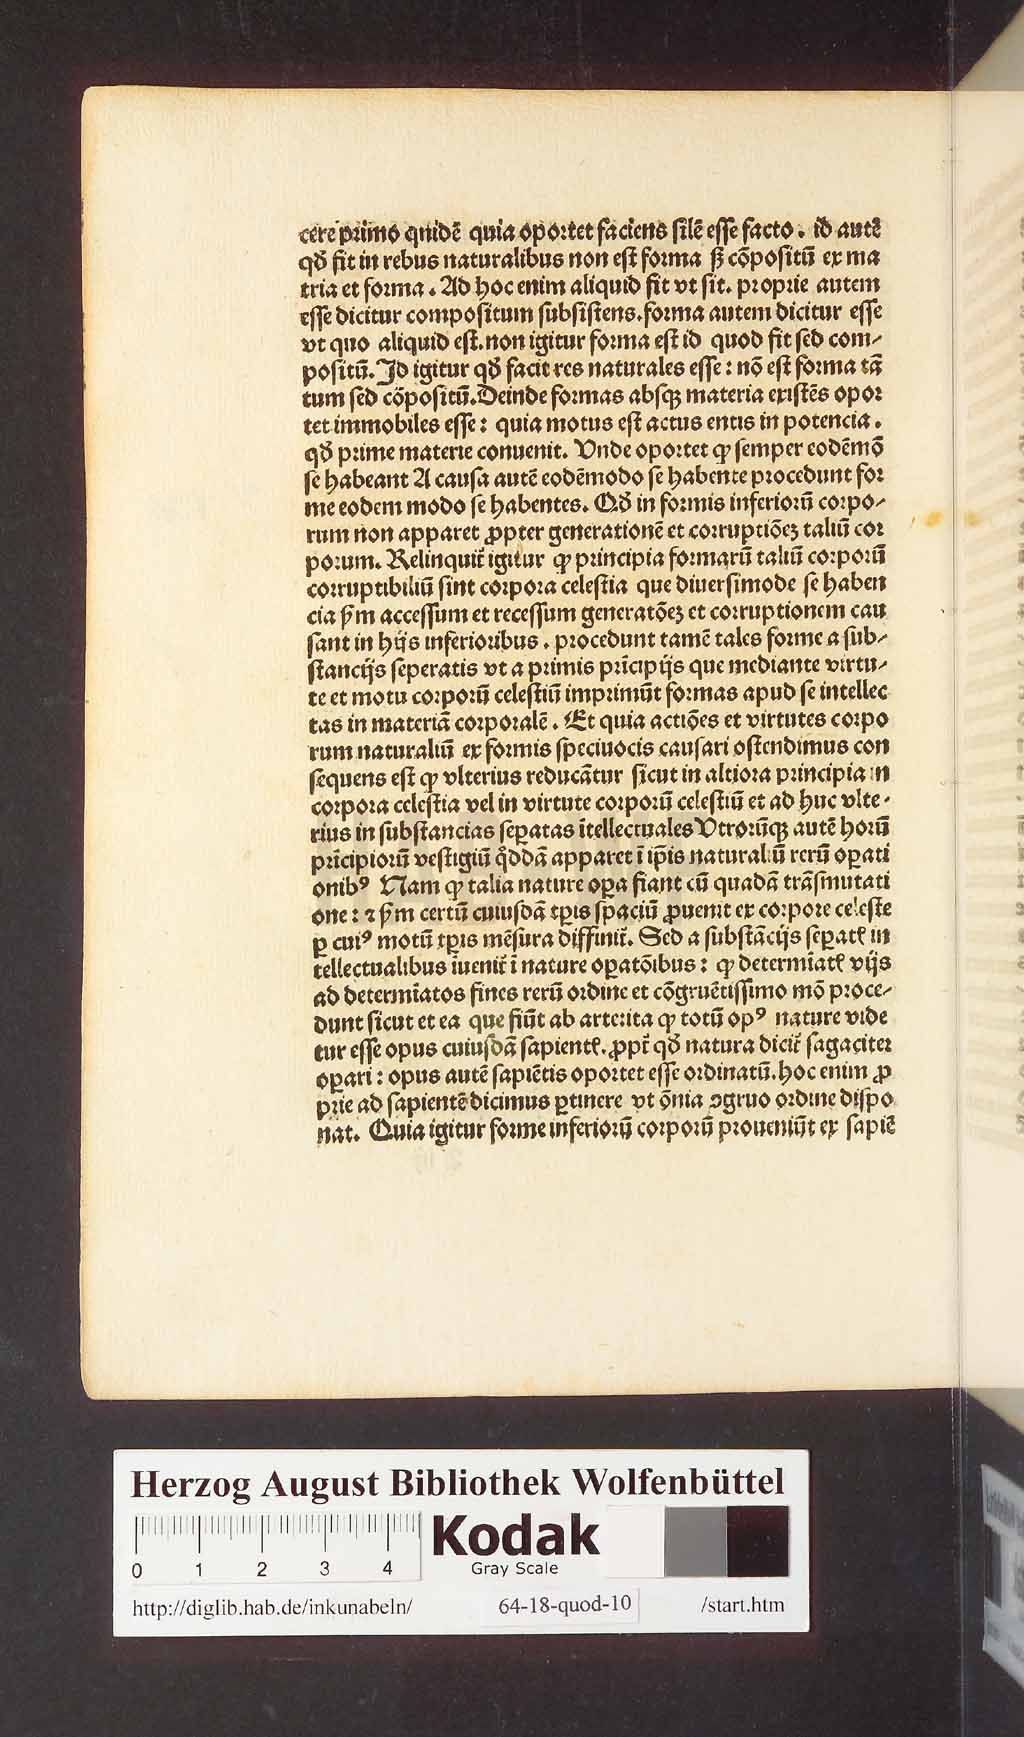 cere primo quidē quia oportet faciens silē esse facto. id autē
qđ fit in rebus naturalibus non est forma sꝫ cōpositū ex ma
tria et forma. Ad hoc enim aliquid fit vt sit. proprie autem
esse dicitur compositum subsistens. forma autem dicitur esse
vt quo aliquid est. non igitur forma est id quod fit sed com⸗
positū. Id igitur qđ facit res naturales esse: nō est forma tā
tum sed cōpositū. Deinde formas absqꝫ materia existēs opor
tet immobiles esse: quia motus est actus entis in potencia.
qđ prime materie conuenit. Vnde oportet ꝙ semper eodēmō
se habeant A causa autē eodēmodo se habente procedunt for
me eodem modo se habentes. Qđ in formis inferiorū corpo⸗
rum non apparet ꝓpter generationē et corruptiōeꝫ taliū cor
porum. Relinquit᷑ igitur ꝙ principia formarū taliū corporū
corruptibiliū sint corpora celestia que diuersimode se haben
cia ẜm accessum et recessum generatōeꝫ et corruptionem cau
sant in hijs inferioribus. procedunt tamē tales forme a sub⸗
stancijs seperatis vt a primis prīcipijs que mediante virtu⸗
te et motu corporū celestiū imprimūt formas apud se intellec
tas in materiā corporalē. Et quia actiōes et virtutes corpo
rum naturaliū ex formis speciuocis causari ostendimus con
sequens est ꝙ vlterius reducātur sicut in altiora principia in
corpora celestia vel in virtute corporū celestiū et ad huc vlte⸗
rius in substancias sep̄atas ītellectuales Vtrorūqꝫ autē horū
prīcipiorū vestigiū qͦddā apparet ī ip̄is naturaliū rerū oꝑati
onibꝰ Nam ꝙ talia nature oꝑa fiant cū quadā trāsmutati
one: ⁊ ẜm certū cuiusdā tꝑis spaciū ꝓuenit ex corpore celeste
ꝑ cuiꝰ motū tꝑis mēsura diffinit᷑. Sed a substācijs seꝑatꝭ in
tellectualibus īuenit᷑ ī nature oꝑatōibus: ꝙ determīatꝭ vijs
ad determīatos fines rerū ordine et cōgruētissimo mō proce⸗
dunt sicut et ea que fiūt ab arte:ita ꝙ totū opꝰ nature vide
tur esse opus cuiusdā sapientꝭ. ꝓpt᷑ qđ natura dicit᷑ sagaciter
oꝑari: opus autē sapiētis oportet esse ordinatū. hoc enim ꝓ
prie ad sapientē dicimus ꝑtinere vt ōnia ꝯgruo ordine dispo
nat. Quia igitur forme inferiorū corporū proueniūt ex sapiē
Herzog August Bibliothek Wolfenbüttel
0 1 2 3 4
Kodak
Gray Scale
http://diglib.hab.de/inkunabeln/ 64-18-quod-10 /start.htm